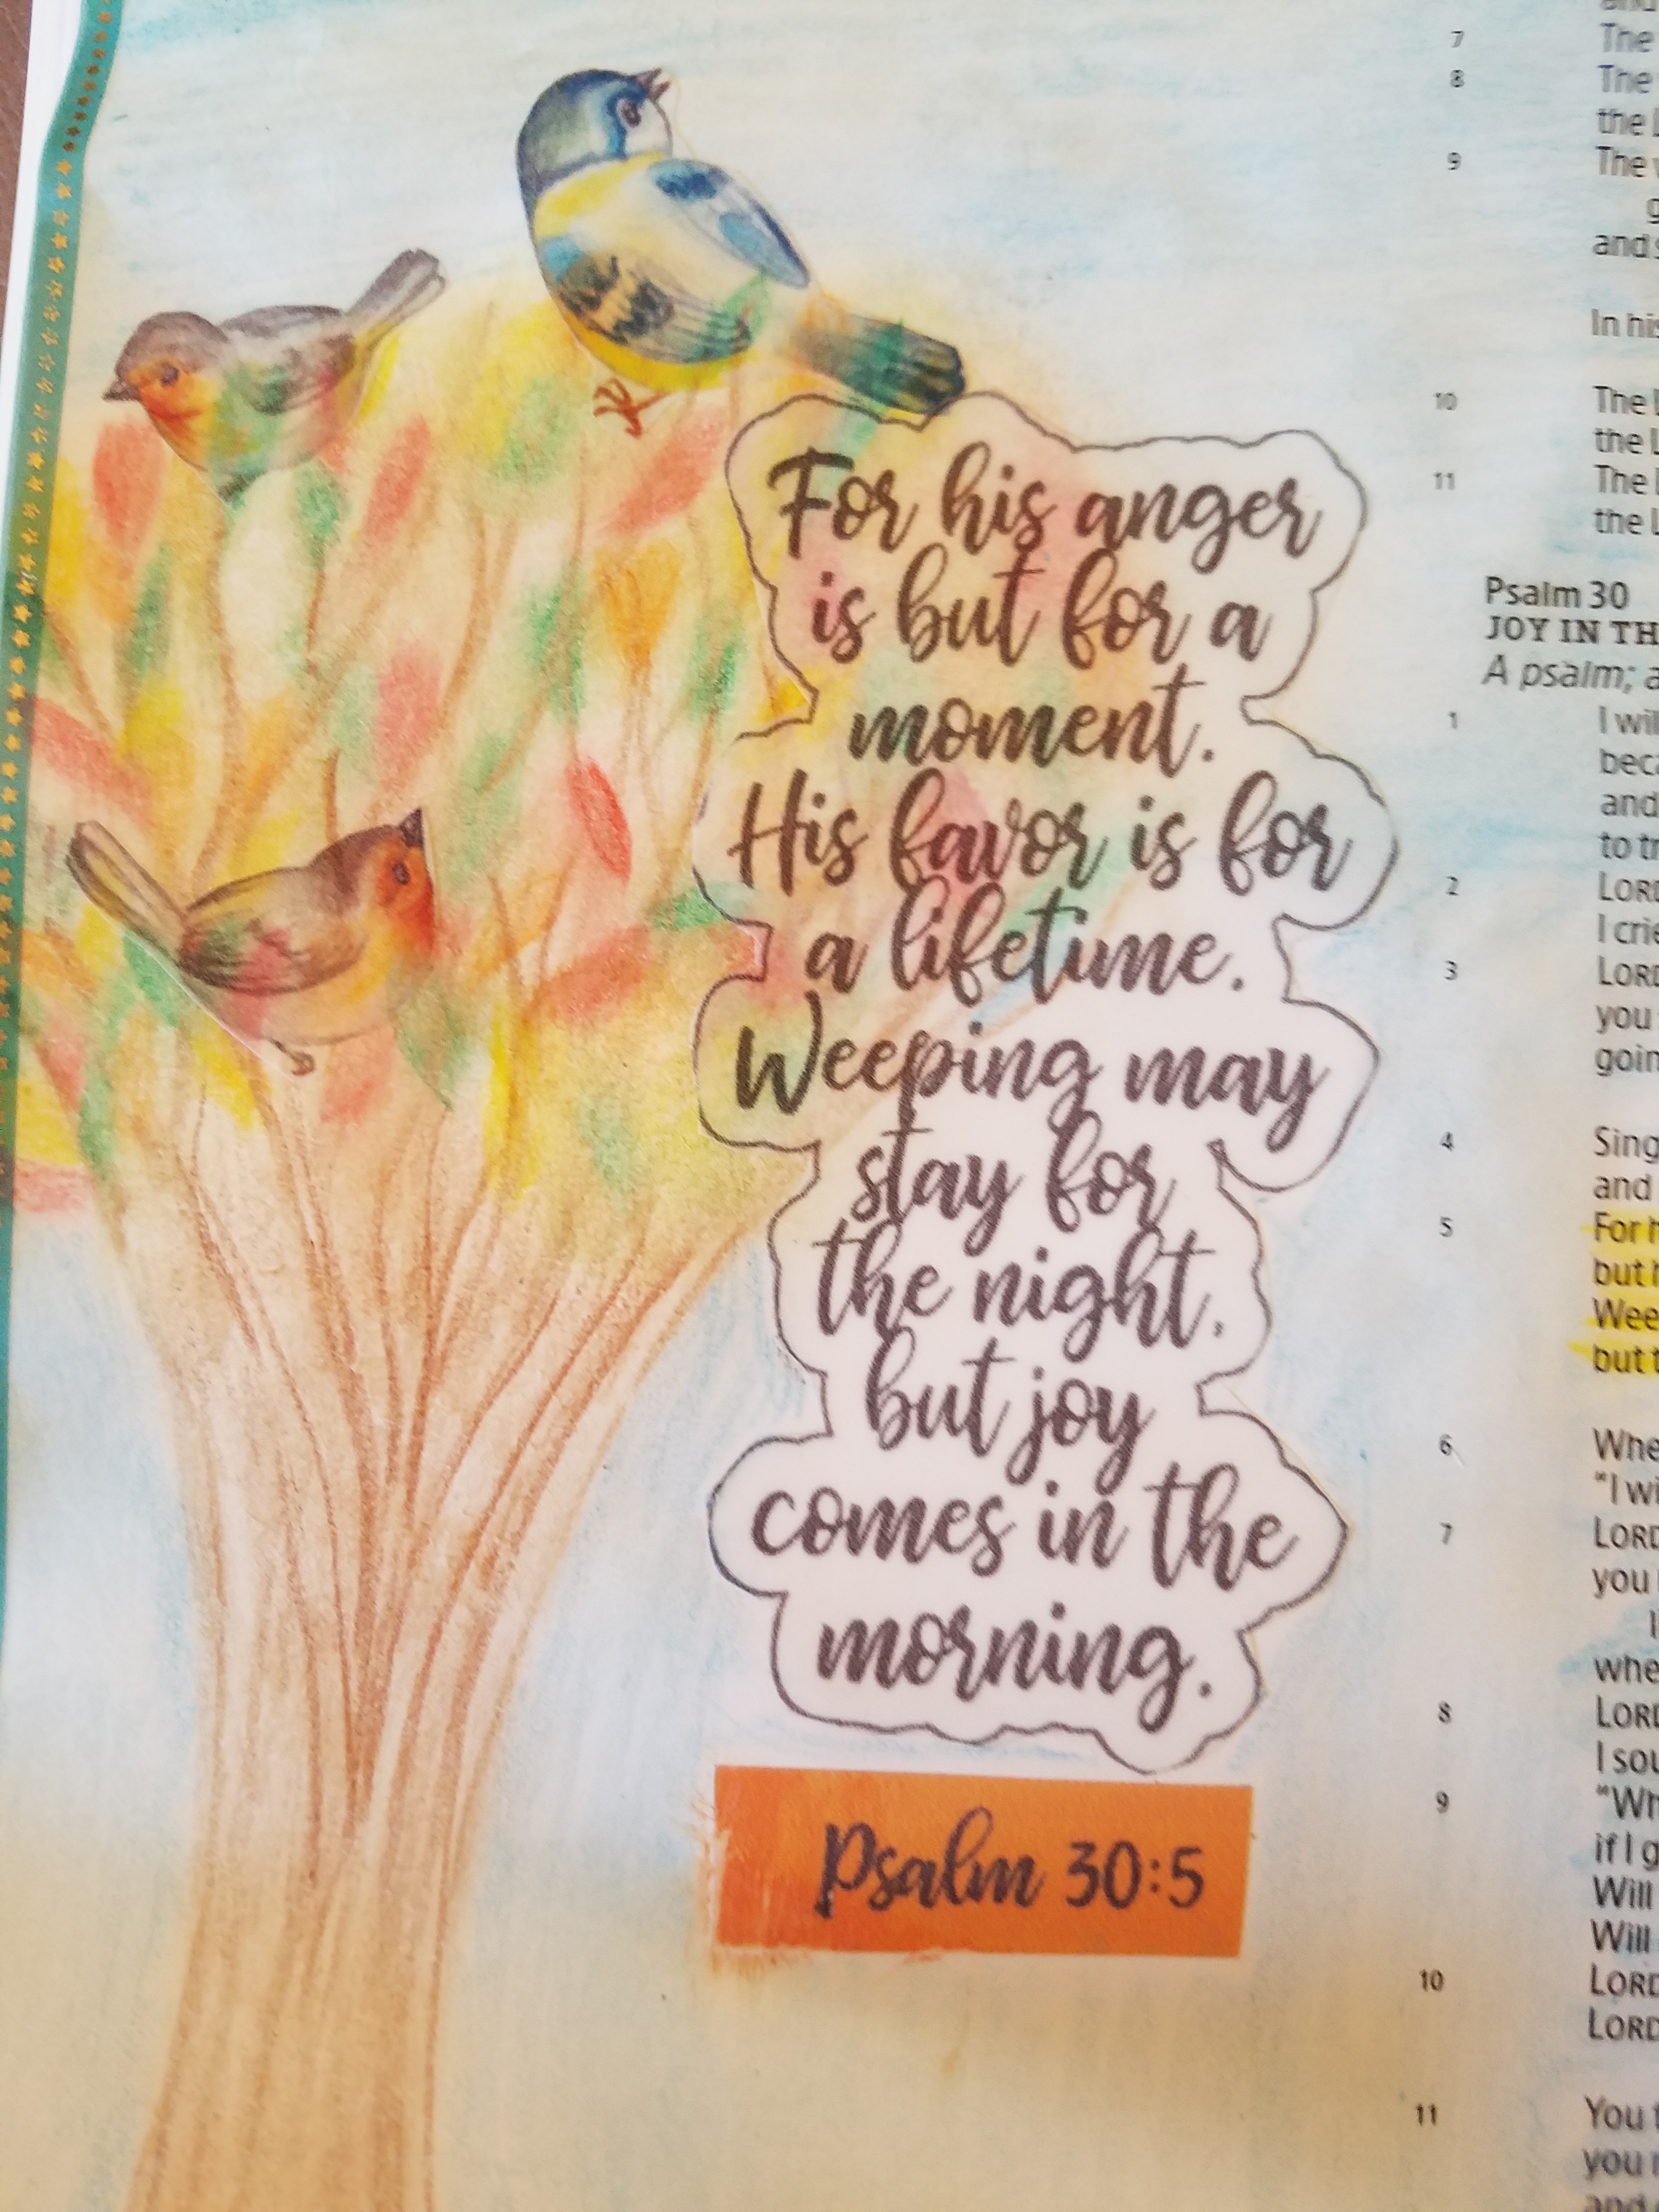 For his anger
is but for a
moment.
His favor is for
a lifetime.
Weeping may
stay for
the night,
but joy
comes in the
morning.
Psalm 30:5
7 The
8 The
the
9 The
and
In his
10 The
the
11 The
the
Psalm 30
JOY IN
A psalm;
1 I will
and
to
2 LORD
I
3 LORD
you
4 Sing
and
5 For
but
but
6
"I
7 LORD
you
8 LORD
I
9
if I
Will
Will
10 LORD
LORD
11 You
you
and